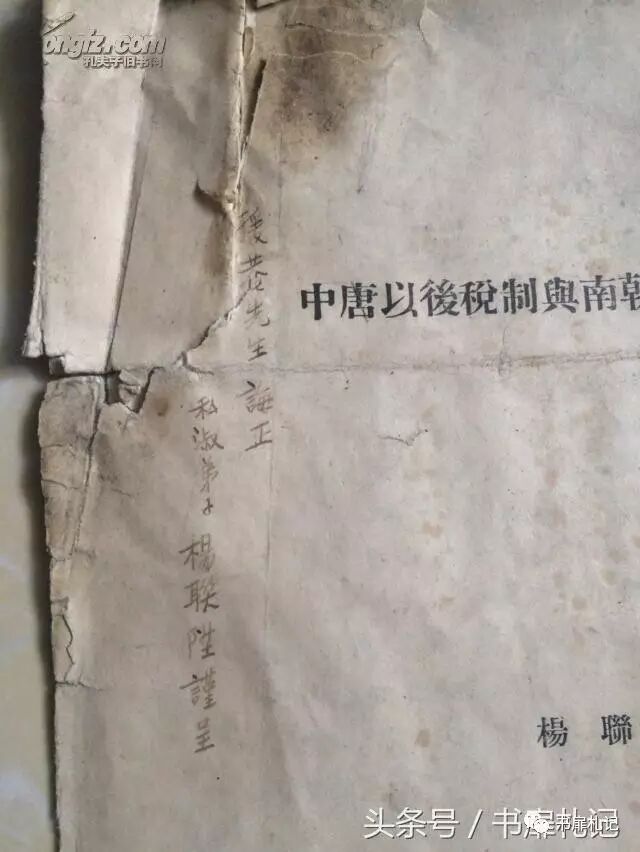 ongfz.com
孔夫子旧书网
中唐以後稅制與南朝
援菴先生 誨正
私淑弟子 楊聯陞 謹呈
楊聯
头条号／书扉札记
书扉札记